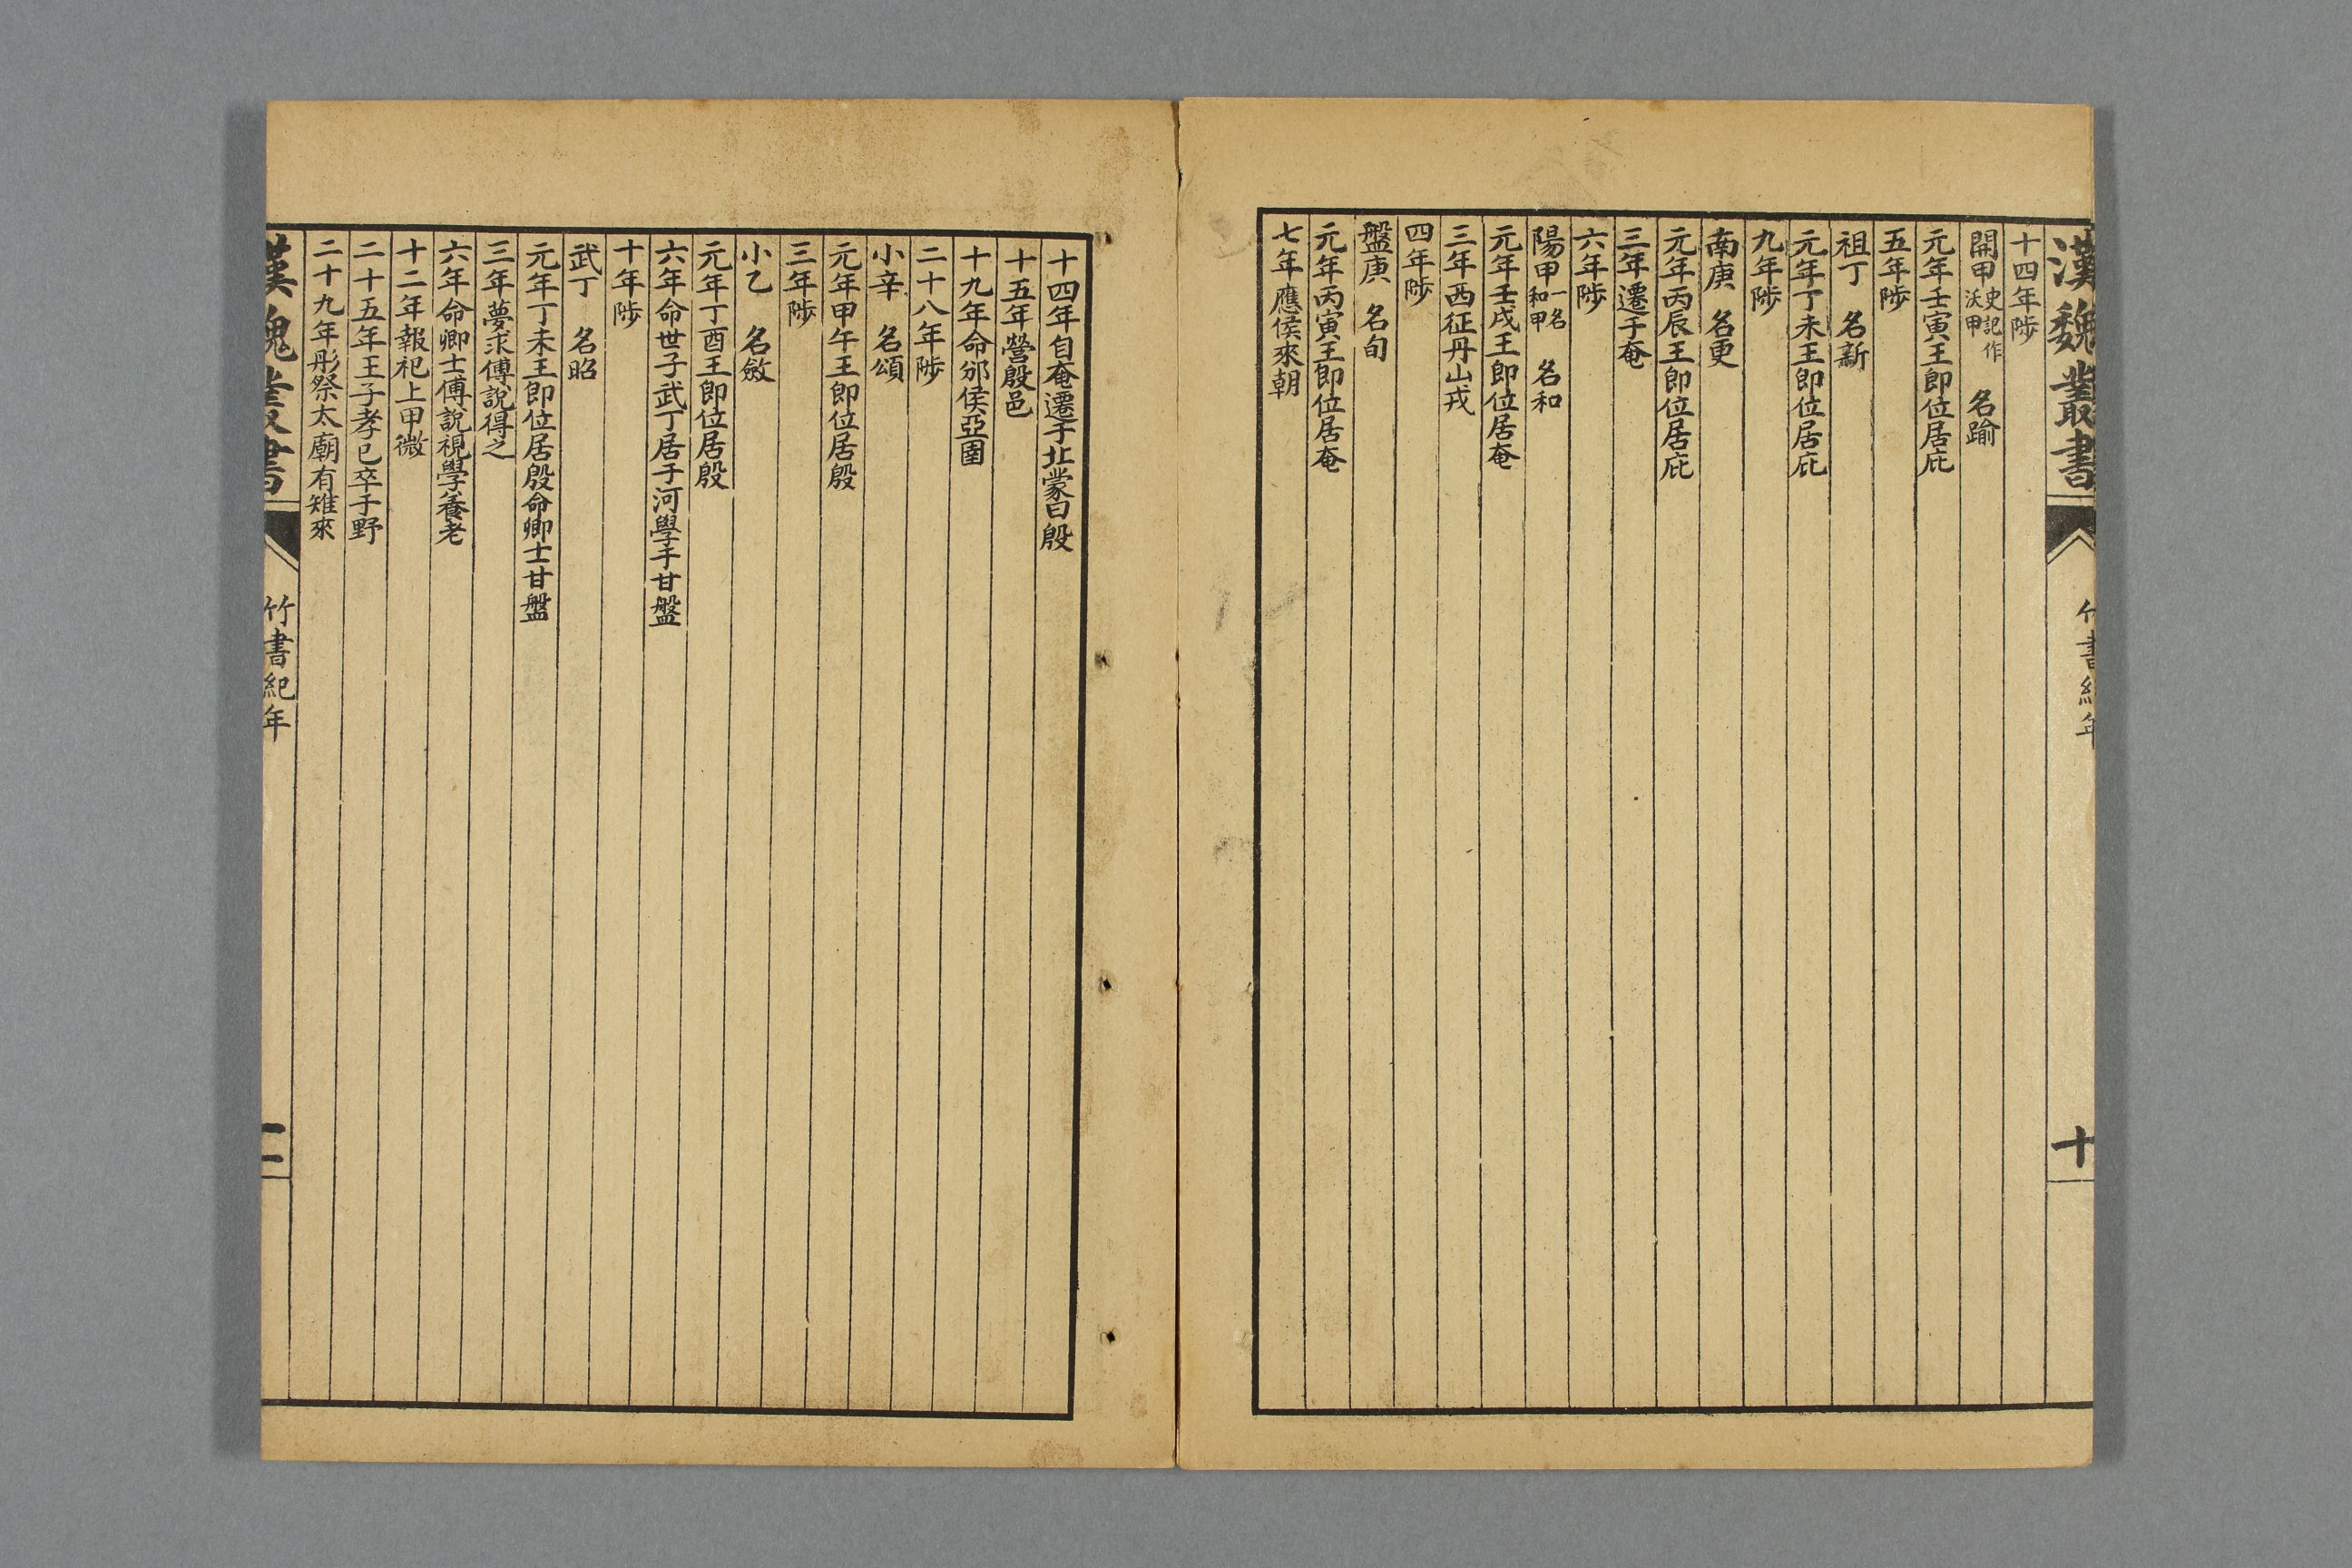 漢魏叢書
竹書紀年
十
十四年陟
開甲 史記作沃甲 名踰
元年壬寅王即位居庇
五年陟
祖丁 名新
元年丁未王即位居庇
九年陟
南庚 名更
元年丙辰王即位居庇
三年遷于奄
六年陟
陽甲 一名和甲 名和
元年壬戌王即位居奄
三年西征丹山戎
四年陟
盤庚 名旬
元年丙寅王即位居奄
七年應侯來朝
十四年自奄遷于北蒙曰殷
十五年營殷邑
十九年命邠侯亞圉
二十八年陟
小辛 名頌
元年甲午王即位居殷
三年陟
小乙 名斂
元年丁酉王即位居殷
六年命世子武丁居于河學于甘盤
十年陟
武丁 名昭
元年丁未王即位居殷命卿士甘盤
三年夢求傅說得之
六年命卿士傅說視學養老
十二年報祀上甲微
二十五年王子孝已卒于野
二十九年肜祭太廟有雉來
漢魏叢書
竹書紀年